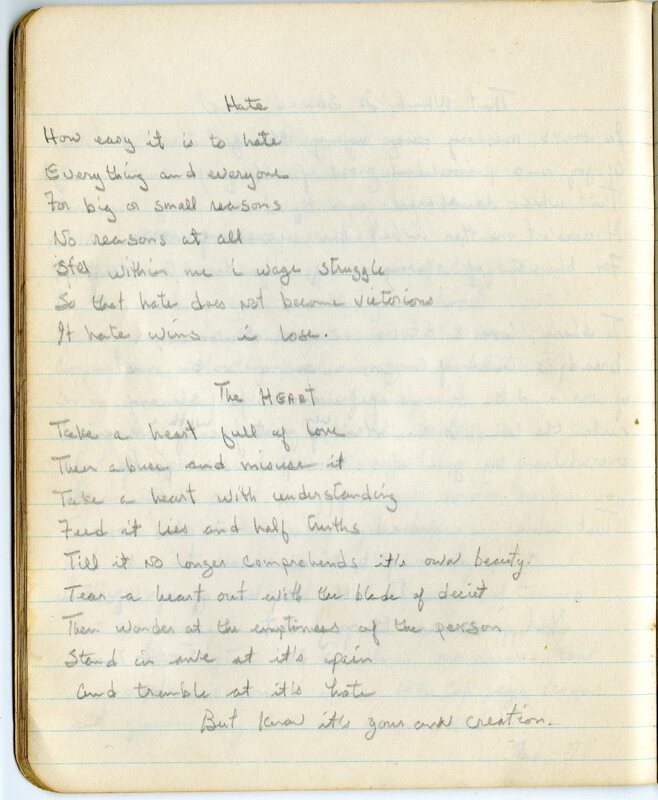 Hate
How easy it is to hate
Everything and everyone
For big or small reasons
No reasons at all
Still within me I wage struggle
So that hate does not become victorious
If hate wins i lose.
The HEART
Take a heart full of love
Then abuse and misuse it
Take a heart with understanding
Feed it lies and half truths
Till it no longer comprehends it's own beauty.
Tear a heart out with the blade of deciet
Then wonder at the emptiness of the person
Stand in awe at it's pain
And tremble at it's hate
But know it's your own creation.